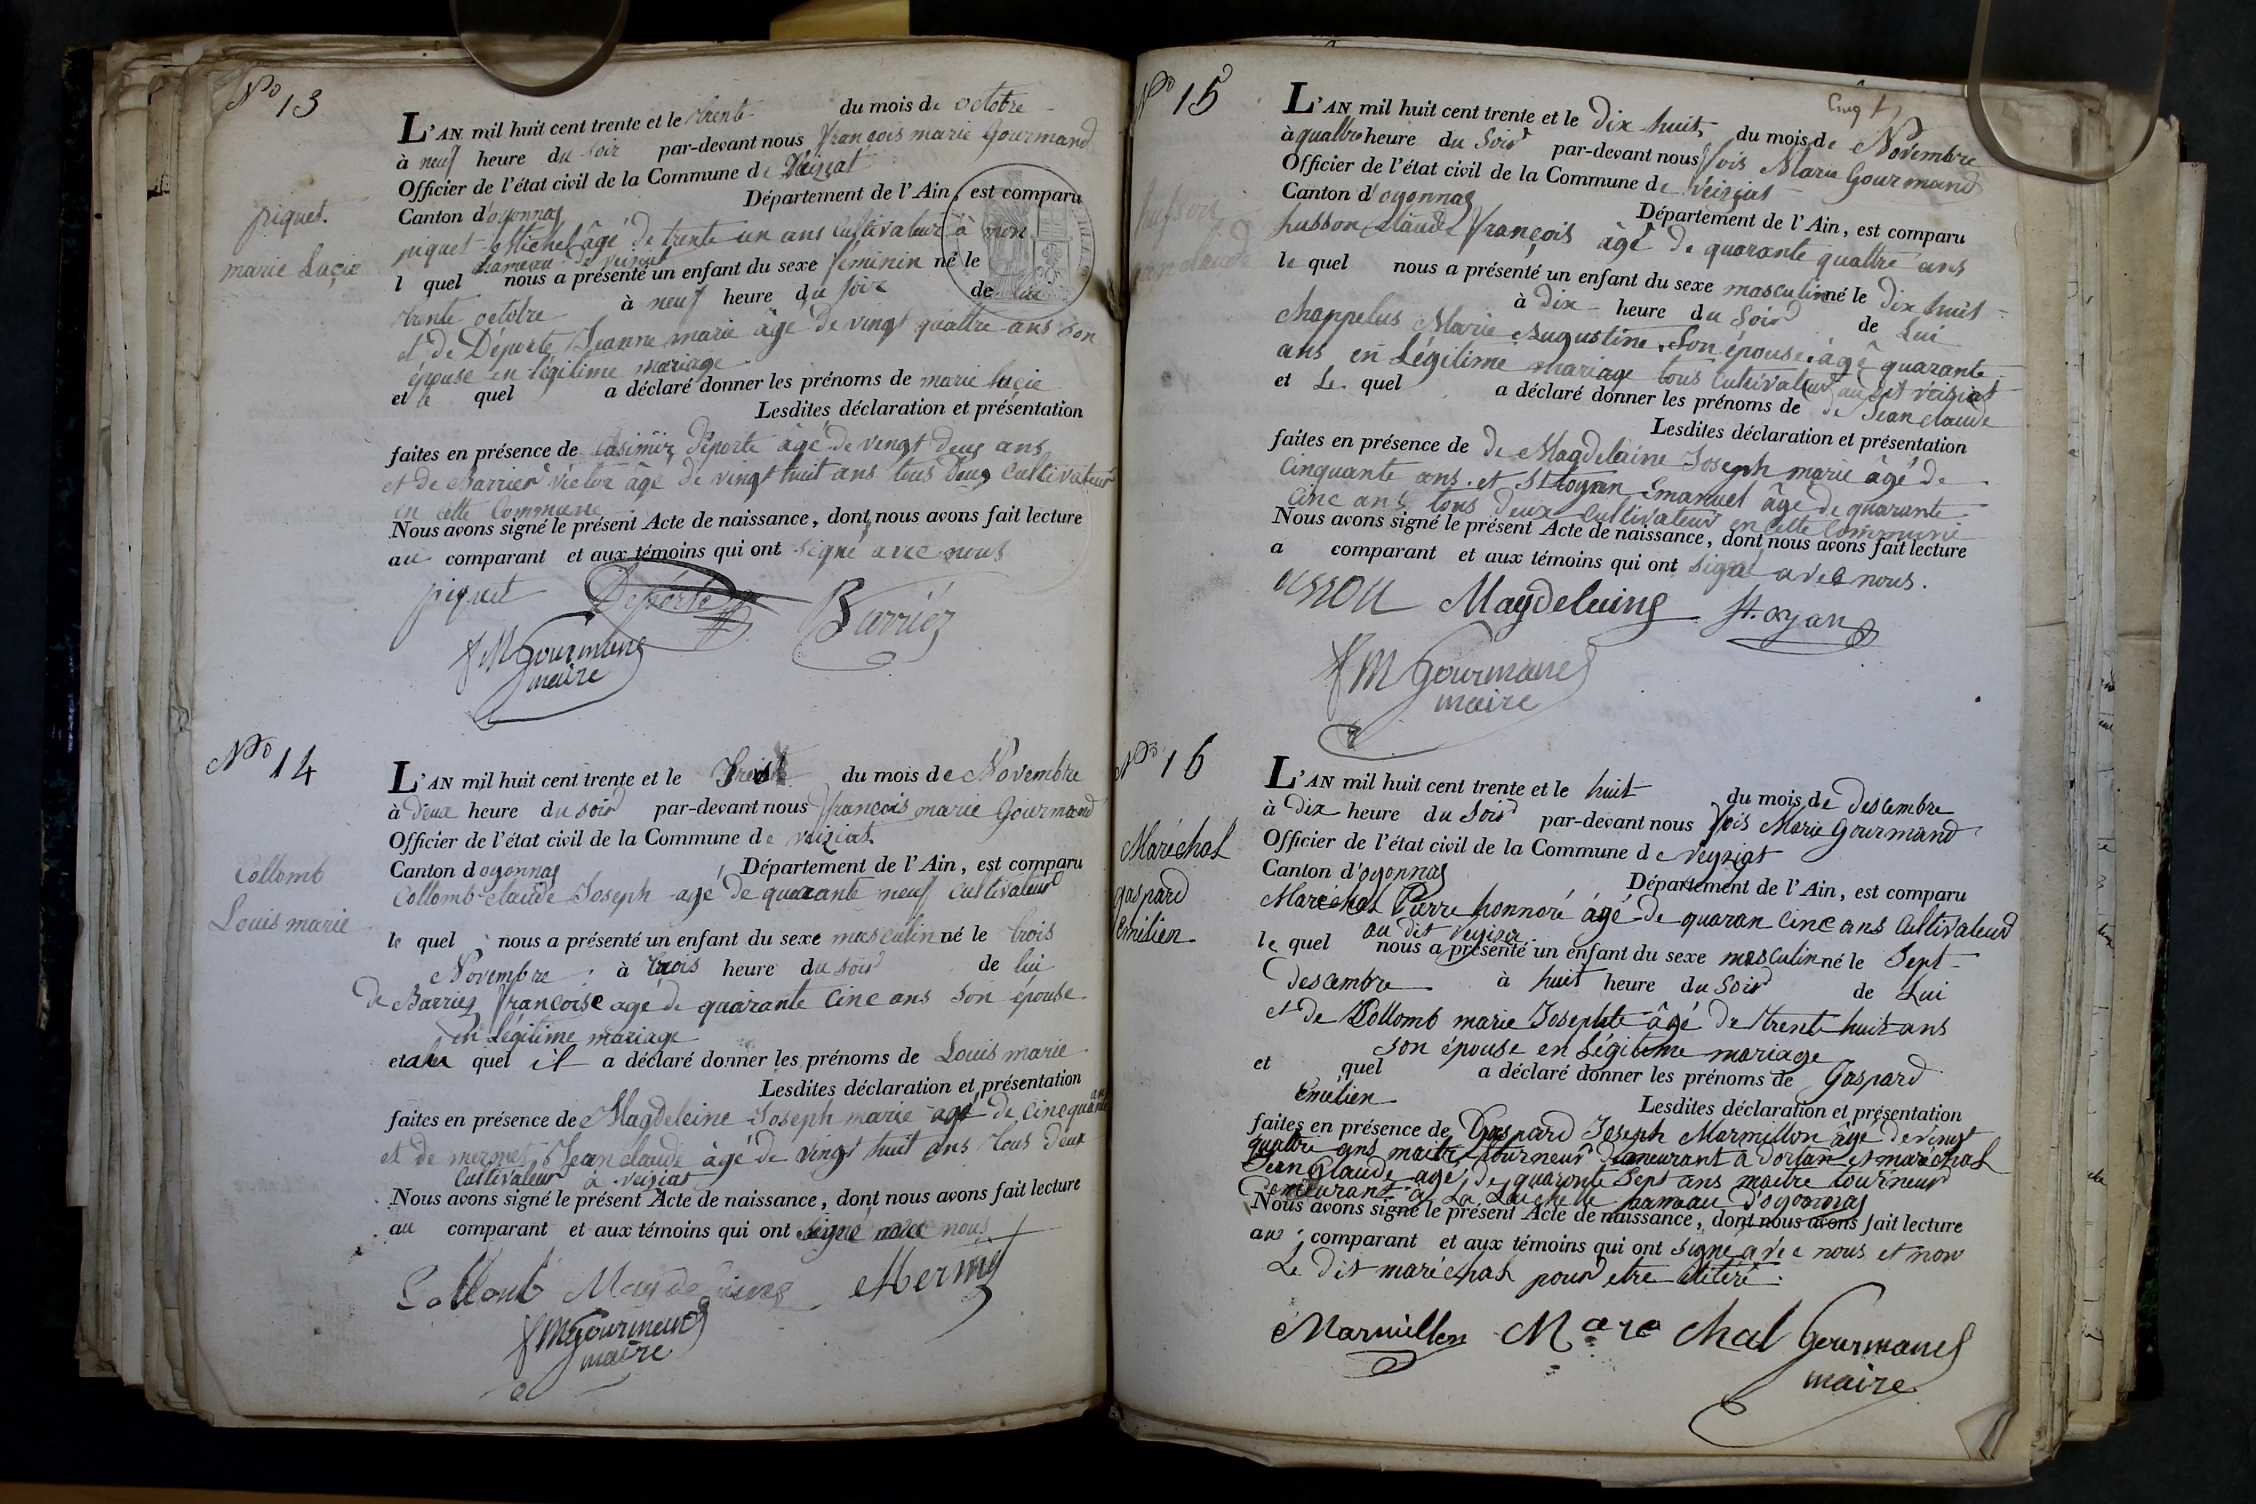 No 13
piquet.
marie Luçie
L'AN mil huit cent trente et le trente du mois de octobre
à neuf heure du soir par-devant nous françois marie Gourmand
Officier de l'état civil de la Commune de Veiziat
Canton d'oyonnas Département de l'Ain, est comparu
piquet Michel âgé de trente un ans Cultivateur à mon
hameau de veiziat
l quel nous a présenté un enfant du sexe féminin né le
trente octobre à neuf heure du soir de lui
et de Déporte Jeanne marie âgé de vingt quattre ans son
épouse en légitime mariage
et le quel a déclaré donner les prénoms de marie luçie
Lesdites déclaration et présentation
faites en présence de Casimir Déporte âgé de vingt deux ans
et de Barrier victor âgé de vingt huit ans tous deux Cultivateur
en cette Commune
Nous avons signé le présent Acte de naissance, dont nous avons fait lecture
au comparant et aux témoins qui ont signé avec nous
piquet Déporte Barriéz
f M Gourmand
maire
No 14
Collomb
Louis marie
L'AN mil huit cent trente et le du mois de Novembre
à deux heure du soir par-devant nous françois marie Gourmand
Officier de l'état civil de la Commune de veiziat
Canton d oyonnas Département de l'Ain, est comparu
Collomb claude Joseph agé de quarante neuf Cultivateur
le quel nous a présenté un enfant du sexe masculin né le trois
Novembre à trois heure du soir de lui
de Barriez françoise agé de quarante cinc ans son épouse
en légitime mariage
et quel il a déclaré donner les prénoms de Louis marie
Lesdites déclaration et présentation
faites en présence de Magdeleine Joseph marie agé de cincquante ans
et de mermet Jean claude âgé de vingt huit ans tous deux
Cultivateur à veiziat
Nous avons signé le présent Acte de naissance, dont nous avons fait lecture
au comparant et aux témoins qui ont signé avec nous
Collomb Magdeleine Mermet
f M Gourmand
maire
No 15
L'AN mil huit cent trente et le Dix huit du mois de Novembre
à quattre heure du Soir par-devant nous fois Marie Gourmand
Officier de l'état civil de la Commune de Veiziat
Canton d'oyonnas Département de l'Ain, est comparu
husson Claude François âgé de quarante quattre ans
le quel nous a présenté un enfant du sexe masculin né le dix huit
à dix heure du Soir de Lui
chappelus Marie Augustine. Son épouse. âgé quarante
ans en Légitime mariage tous Cultivateur au dit veiziat
et Le quel a déclaré donner les prénoms de de Jean claude
Lesdites déclaration et présentation
faites en présence de de Magdelaine Joseph marie âgé de
Cinquante ans. et St toyan Emanuel âgé de quarante
cinc ans tous deux Cultivateur en cette Commune
Nous avons signé le présent Acte de naissance, dont nous avons fait lecture
a comparant et aux témoins qui ont signé avec nous.
usson Magdeluine St. oyan
f M Gourmand
maire
No 16
Maréchal
gaspard
Emilien
L'AN mil huit cent trente et le huit du mois de Descembre
à Dix heure du Soir par-devant nous fois Marie Gourmand
Officier de l'état civil de la Commune de Veyziat
Canton d'oyonnas Département de l'Ain, est comparu
Maréchal Pierre honnoré âgé de quaran cinc ans Cultivateur
au dit
le quel nous a présenté un enfant du sexe masculin né le Sept
Descembre à huit heure du Soir de Lui
et de Collomb marie Josephte âgé de trente huit ans
son épouse en Légitime mariage
et quel a déclaré donner les prénoms de Gaspard
Emélien
Lesdites déclaration et présentation
faites en présence de Gaspard Joseph Marmillon âgé de vingt
quattre ans maitre tourneur demeurant à dortan et maréchal
Jean Claude agé de quarante Sept ans maitre tourneur
Demeurant à La hameau d'oyonnas
Nous avons signé le présent Acte de naissance, dont nous avons fait lecture
au comparant et aux témoins qui ont signé avec nous et non
Le dit maréchal pour etre
Marmillon Marechal Gourmand
maire